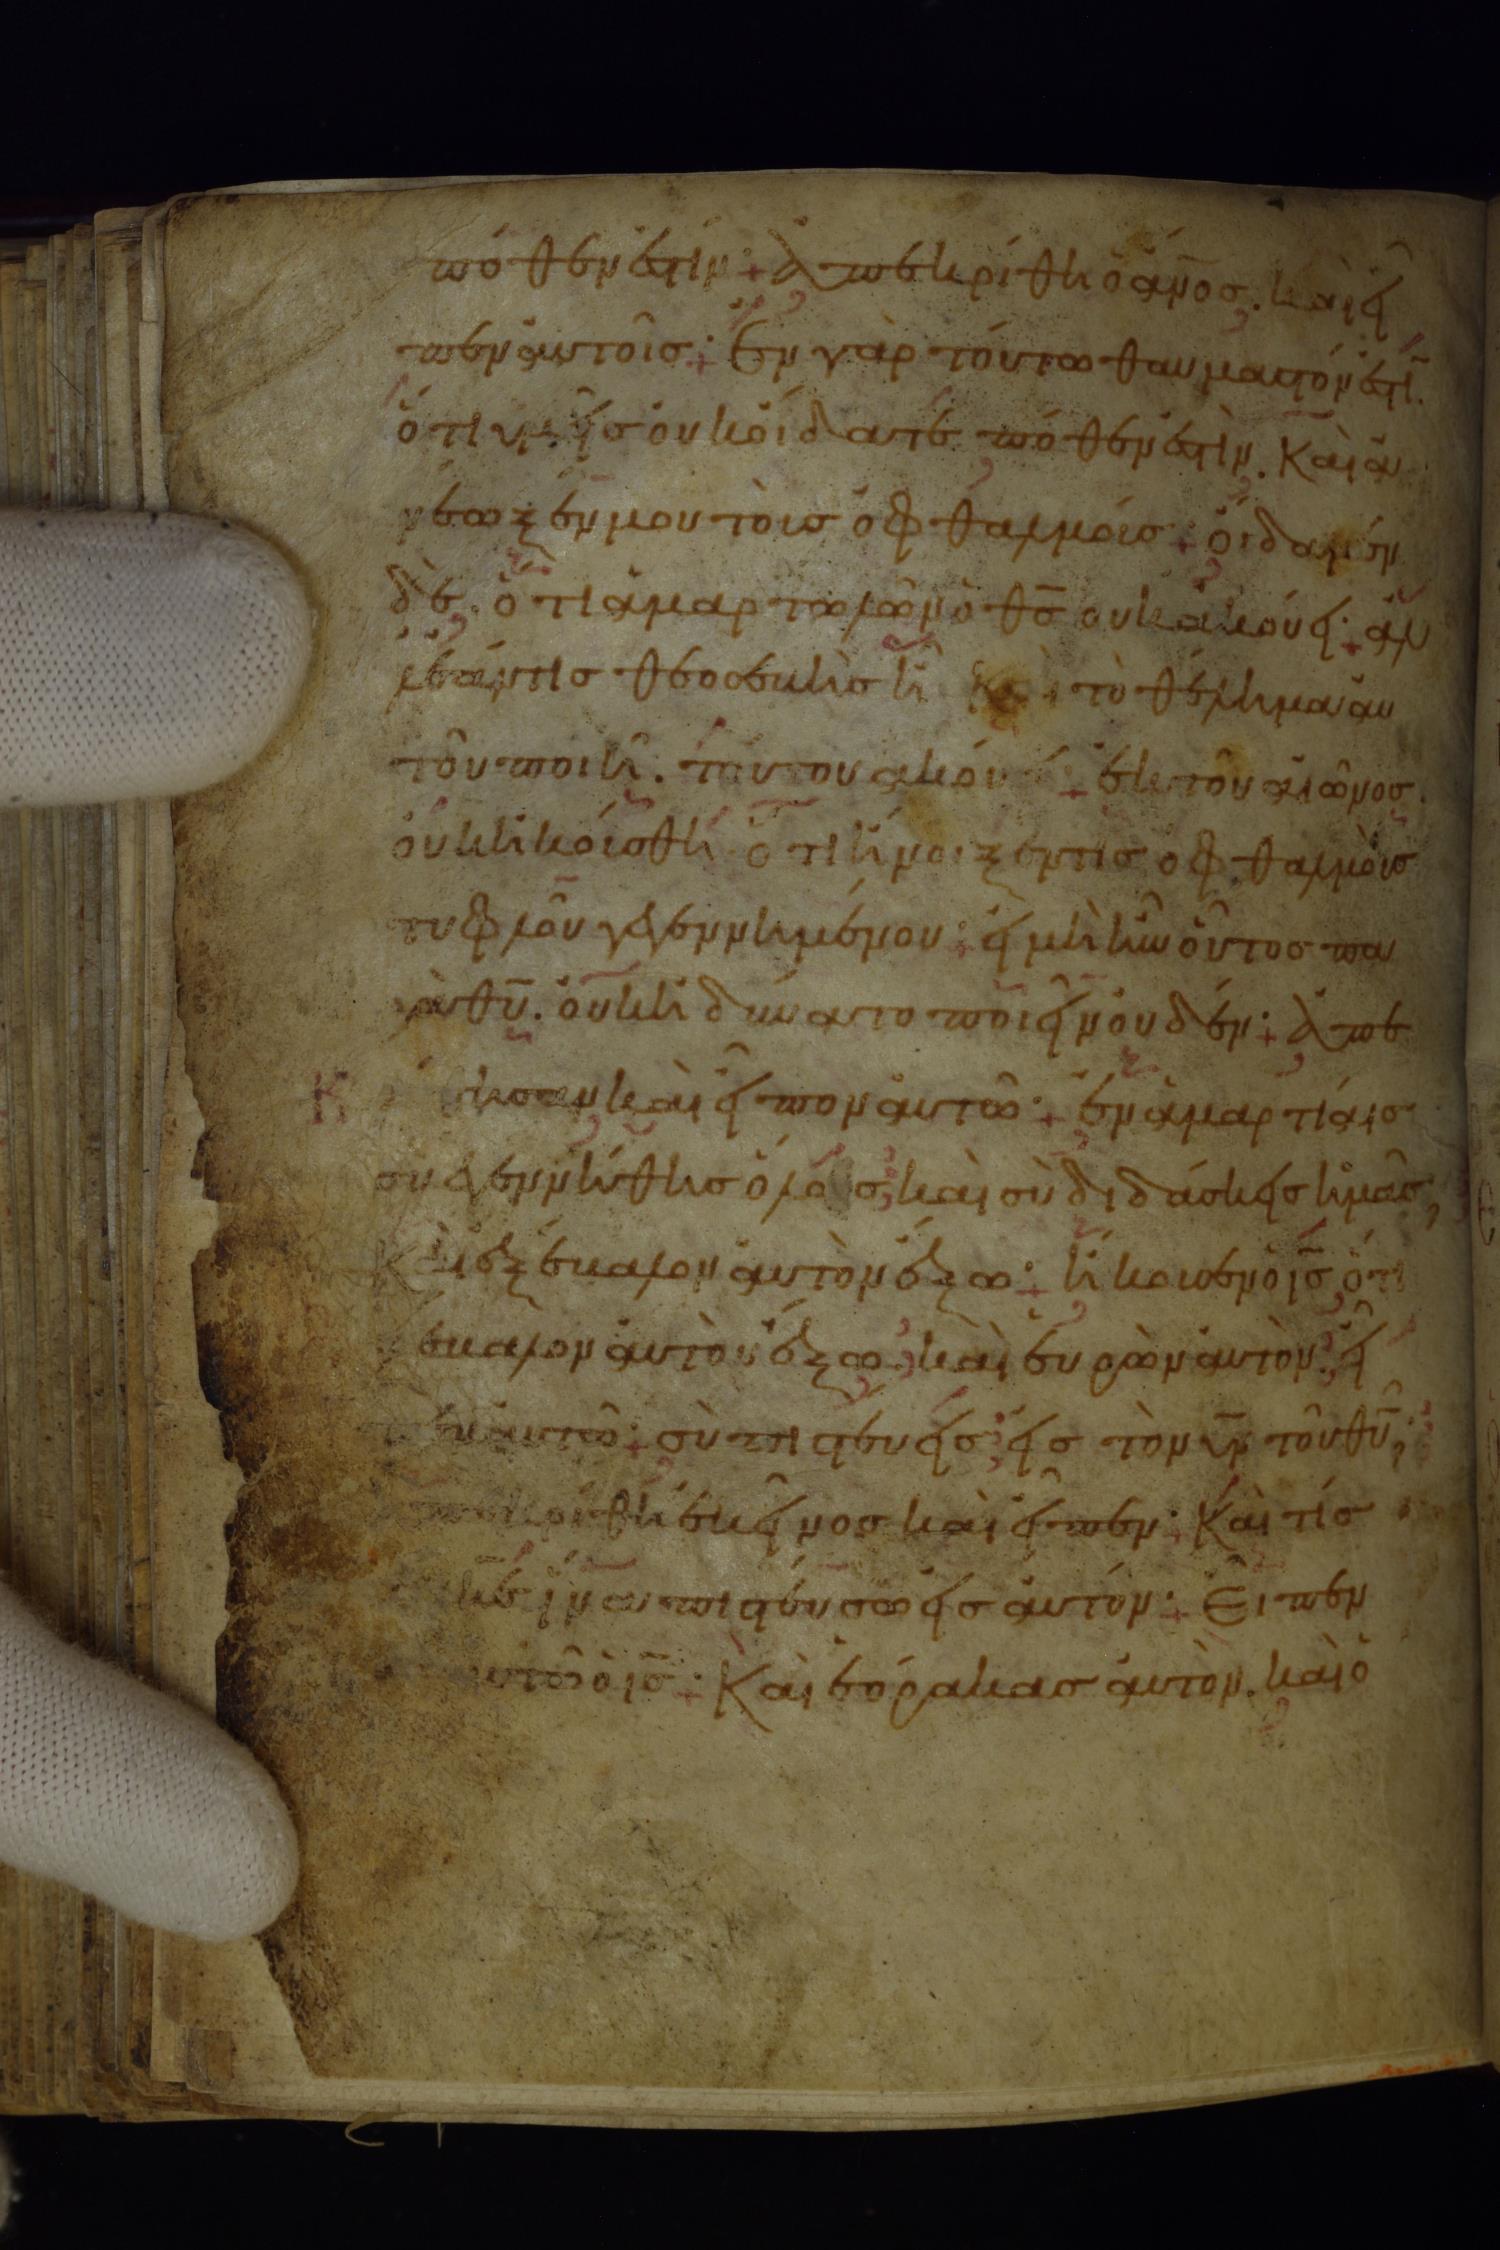 πόθεν ἐστίν· ἀπεκρίθη ὁ ἀν̅ος. καὶ εἶ
πεν αὐτοῖς· Ἐν γὰρ τούτω θαυμαστόν ἐστῖ.
ὅτι ὑμεῖς οὐκ οἴδατε πόθεν ἐστίν. Καὶ ἀ
νέωξέν μου τοὺς ὀφθαλμούς· οἴδαμεν
δὲ. ὅτι ἁμαρτωλῶν ὁ θ̅ς οὐκ ἀκούει· ἀλ
λ' ἐάν τις θεοσεβὴς ἦ καὶ τὸ θέλημα αὐ
τοῦ ποιῆ. τούτου ἀκούει· ἐκ τοῦ αἰῶνος.
οὐκ ἠκούσθη ὅτι ἤνοιξεν τις ὀφθαλμοὺς
τυφλοῦ γεγεννημένου· εἰ μὴ ἦν οὗτος πα
ρὰ θ̅υ. οὐκ ἠδύνατο ποιεῖν οὐδέν· ἀπε
κ θησαν καὶ εἶπον αὐτῶ· ἐν ἁμαρτίαις
σὺ ἐγεννήθης ὅλος, καὶ σὺ διδάσκεις ἡμᾶς,
Καὶ ἐξέβαλον αὐτὸν ἔξω· ἤκουσεν ὁ ι̅ς ὅτι
ἐβαλον αὐτὸν ἔξω. καὶ εὑρὼν αὐτὸν. εἶ
πεν αὐτῶ· σὺ πιστεύεις εἰς τὸν υ̅ν τοῦ θ̅υ,
πεκρίθη ἐκεῖνος καὶ εἶπεν· Καὶ τίς
κ̅ε ἵνα πιστεύσω εἰς αὐτόν· Εἶπεν
αὐτῶ ὁ ι̅ς· Καὶ ἑόρακας αὐτὸν. καὶ ὁ